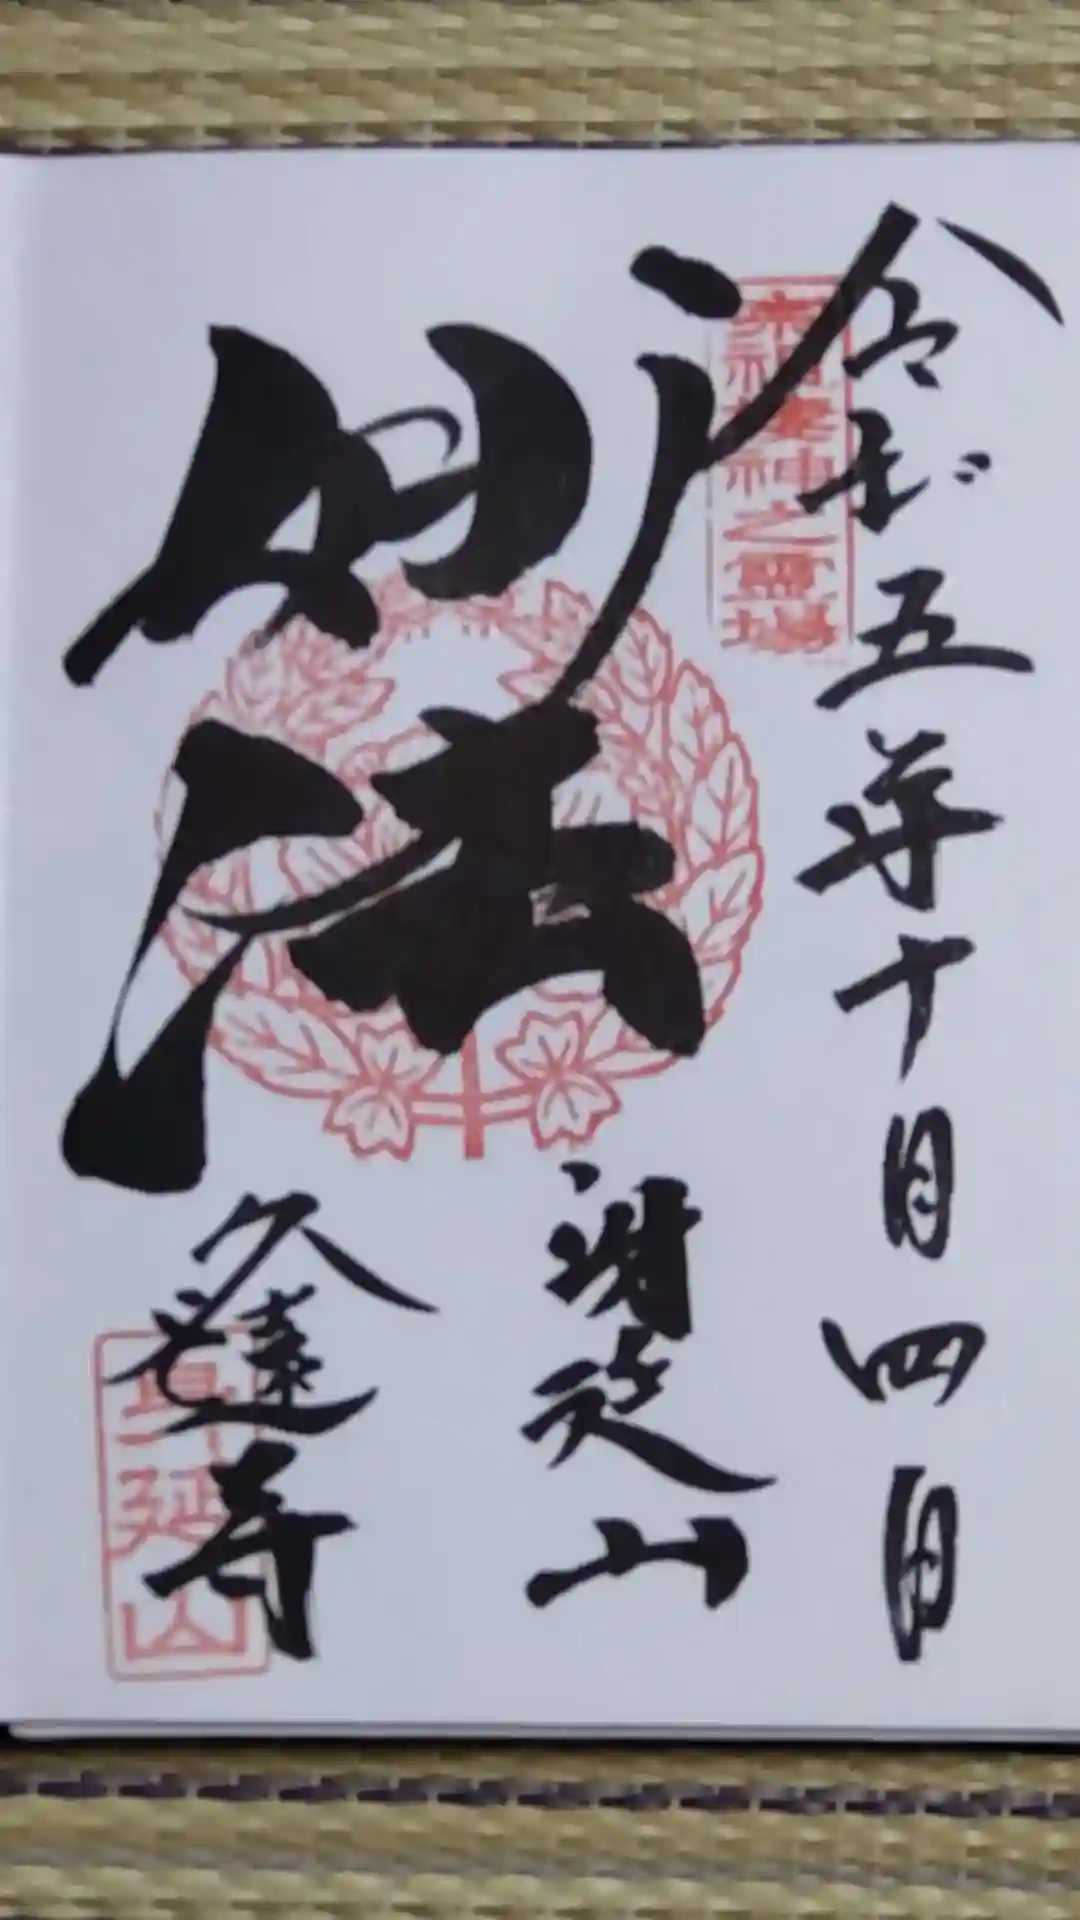 令和五年十月四日
宗祖棲神之霊場
妙法
身延山
久遠寺
身延山